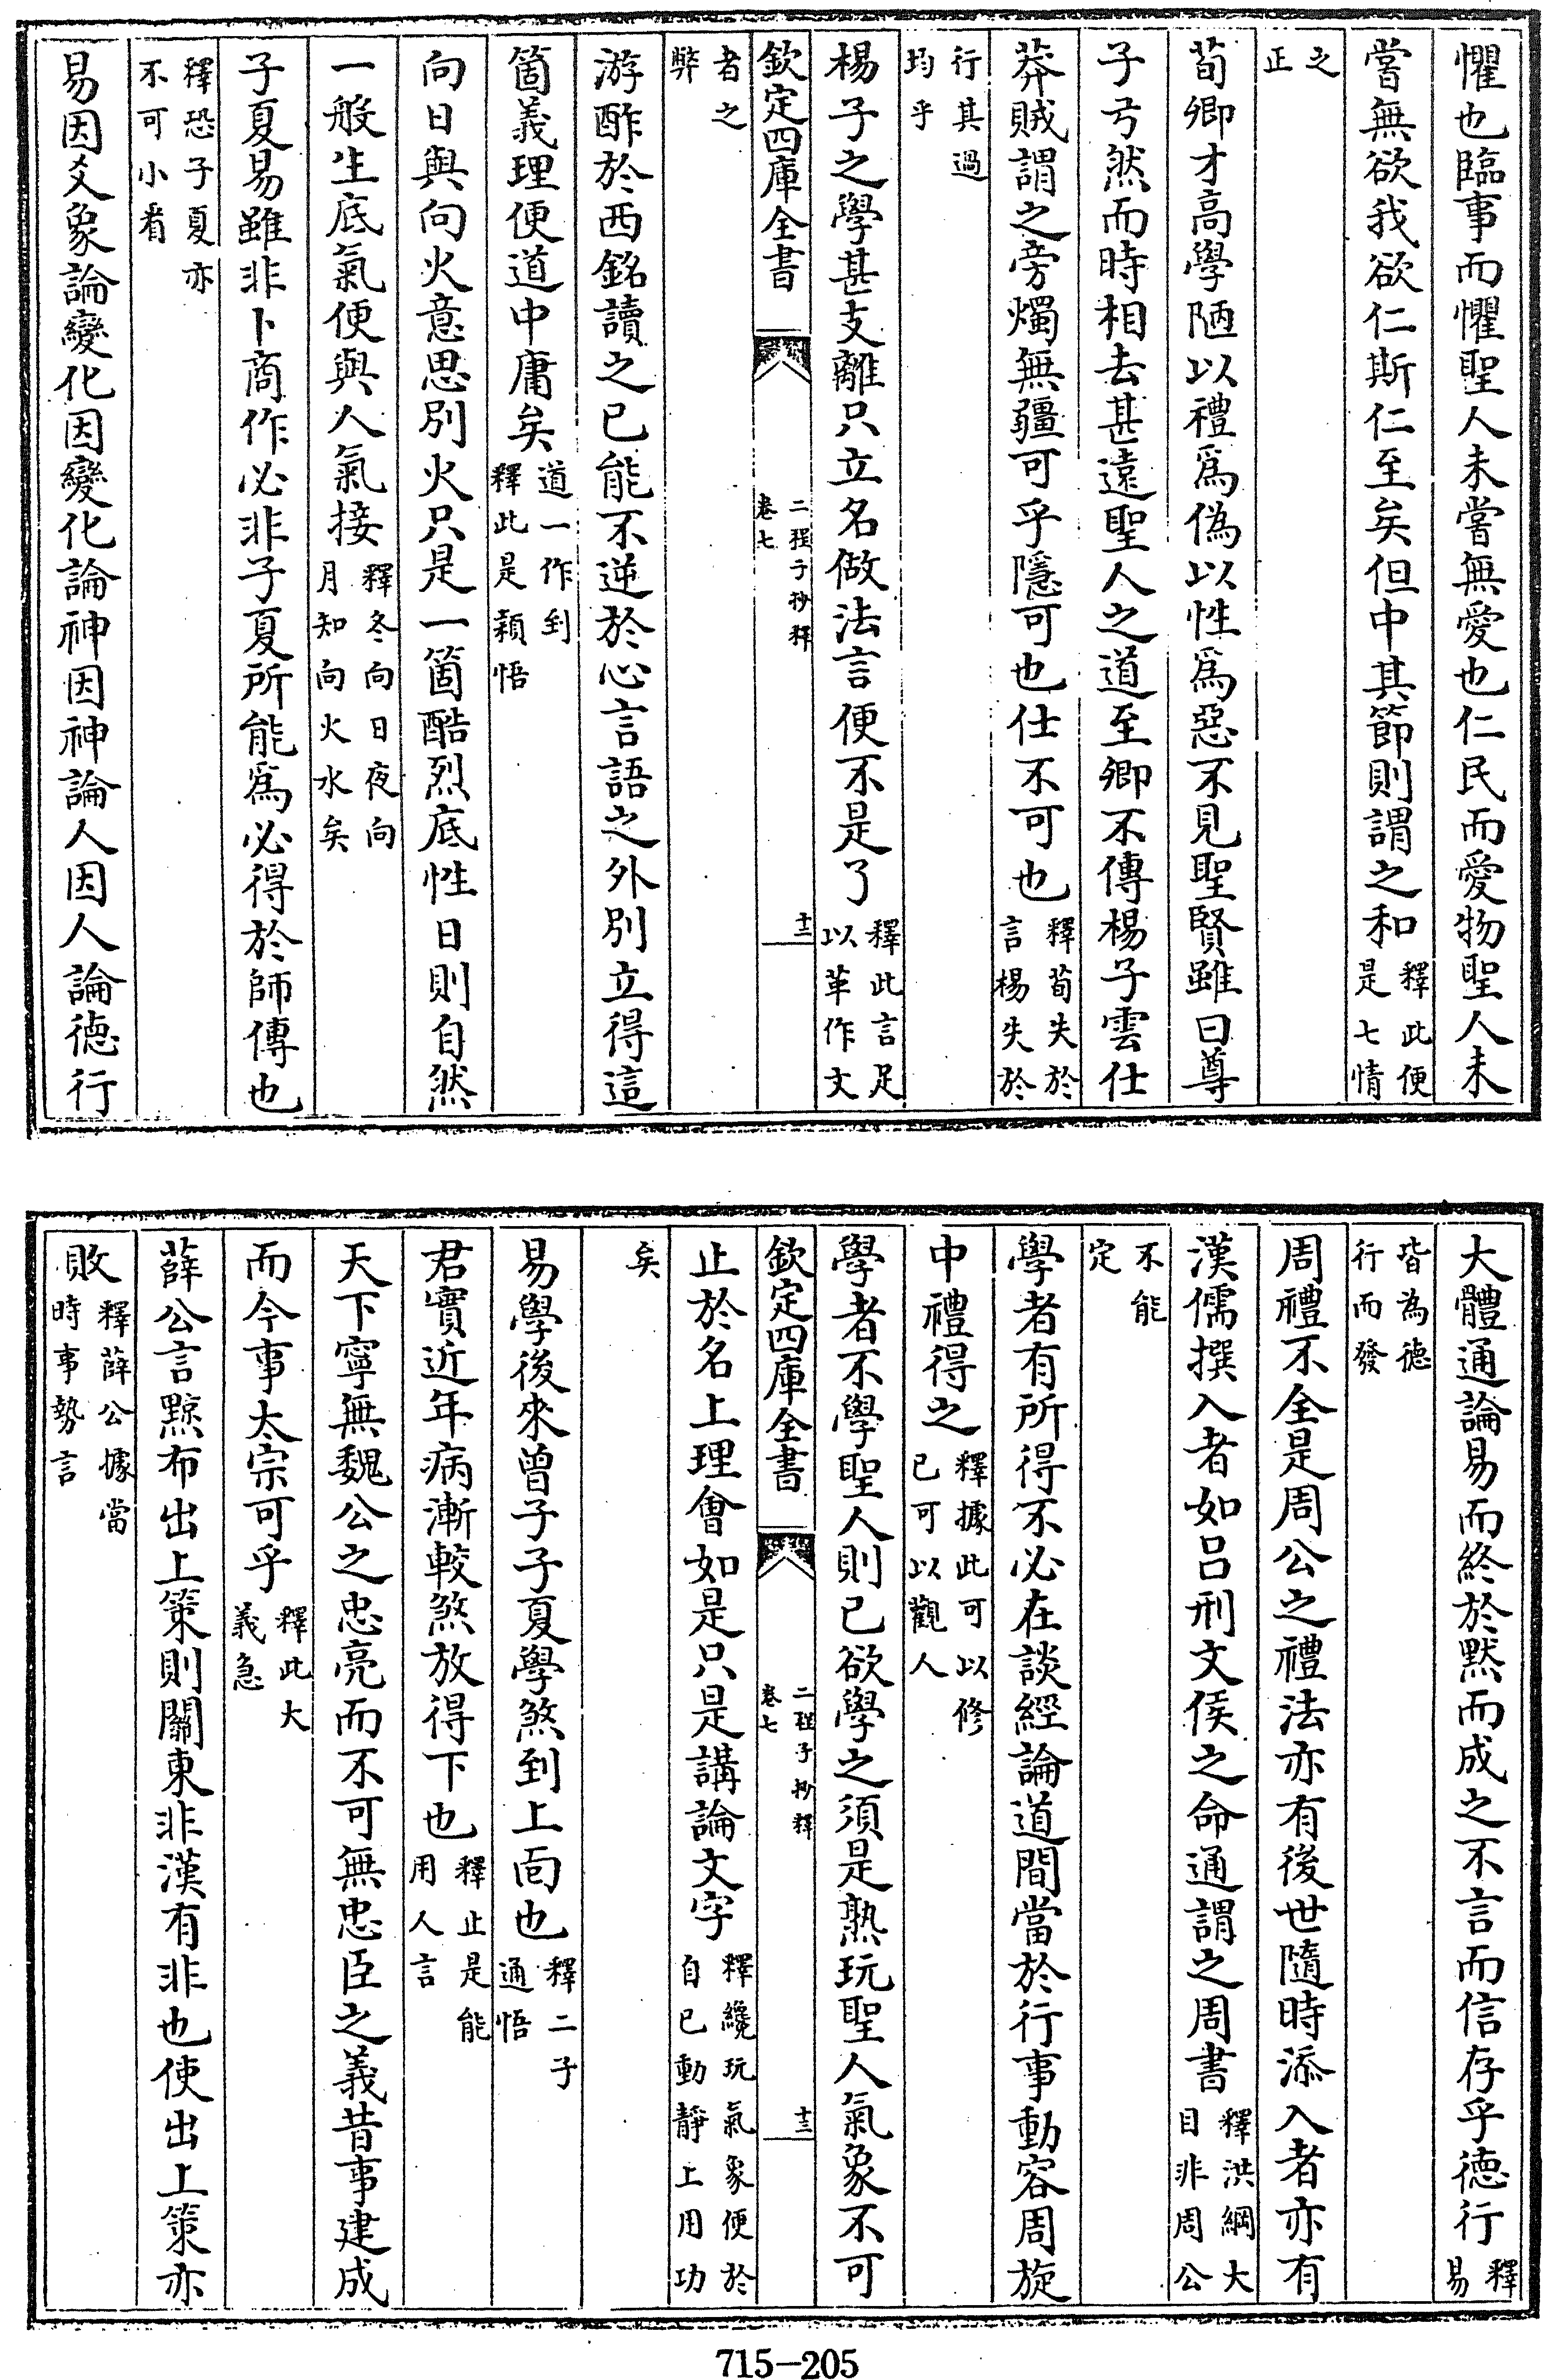 懼也臨事而懼聖人未嘗無愛也仁民而愛物聖人未
嘗無欲我欲仁斯仁至矣但中其節則謂之和釋此便是七情
之正
荀卿才高學陋以禮爲偽以性爲惡不見聖賢雖曰尊
子弓然而時相去甚遠聖人之道至卿不傳楊子雲仕
莽賊謂之旁燭無疆可乎隱可也仕不可也釋荀失於言楊失於
行其過均乎
楊子之學甚支離只立名做法言便不是了釋此言足以革作文
欽定四庫全書 二程子抄釋卷七 十二
者之弊
游酢於西銘讀之已能不逆於心言語之外別立得這
箇義理便道中庸矣道一作到釋此是穎悟
向日與向火意思別火只是一箇酷烈底性日則自然
一般生底氣便與人氣接釋冬向日夜向月知向火水矣
子夏易雖非卜商作必非子夏所能爲必得於師傳也
釋恐子夏亦不可小看
易因爻象論變化因變化論神因神論人因人論德行
大體通論易而終於默而成之不言而信存乎德行釋易
皆為德行而發
周禮不全是周公之禮法亦有後世隨時添入者亦有
漢儒撰入者如呂刑文侯之命通謂之周書釋洪綱大目非周公
不能定
學者有所得不必在談經論道間當於行事動容周旋
中禮得之釋據此可以修已可以觀人
學者不學聖人則已欲學之須是熟玩聖人氣象不可
欽定四庫全書 二程子抄釋卷七 十三
止於名上理會如是只是講論文字釋纔玩氣象便於自已動靜上用功
矣
易學後來曾子子夏學煞到上面也釋二子通悟
君實近年病漸較煞放得下也釋止是能用人言
天下寧無魏公之忠亮而不可無忠臣之義昔事建成
而今事太宗可乎釋此大義急
薛公言黥布出上策則關東非漢有非也使出上策亦
敗釋薛公據當時事勢言
715-205